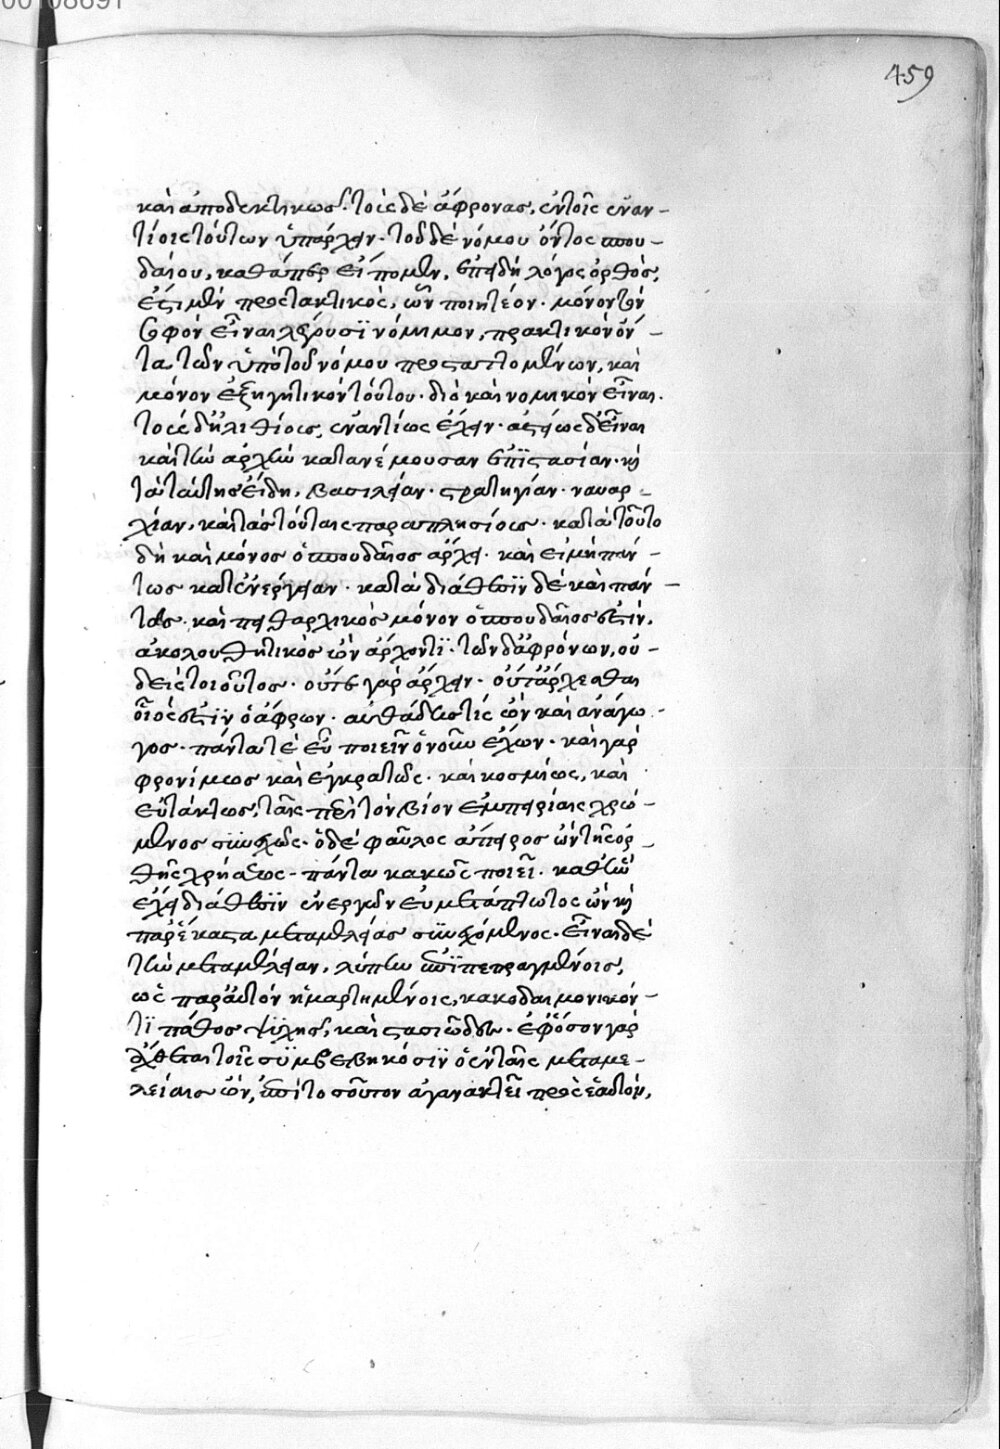 459
καὶ ἀποδεκτικῶς· τοὺς δὲ ἄφρονας, ἐν τοῖς ἐναν-
τίοις τούτων ὑπάρχειν· τοῦ δὲ νόμου ὄντος σπου-
δαίου, καθάπερ εἴπομεν, ἐπειδὴ λόγος ὀρθός,
ἐστι μὲν προστακτικὸς, ὧν ποιητέον· μόνον τὸν
σοφὸν εἶναι λέγουσι νόμιμον, πρακτικὸν ὄν-
τα τῶν ὑπὸ τοῦ νόμου προσταττομένων, καὶ
μόνον ἐξηγητικὸν τούτου· διὸ καὶ νομικὸν εἶναι·
τοὺς δ' ἠλιθίους, ἐναντίως ἔχειν· ἀστείως δ' εἶναι
καὶ τὴν ἀρχὴν κατανέμουσαν ἐπιστασίαν· καὶ
τὰ ταύτης εἴδη, βασιλείαν· στρατηγίαν· ναυαρ-
χίαν, καὶ τὰς τούταις παραπλησίους· κατὰ τοῦτο
δὴ καὶ μόνος ὁ σπουδαῖος ἄρχει· καὶ εἰ μὴ πάν-
τως κατ' ἐνέργειαν· κατὰ διάθεσιν δὲ καὶ πάν-
τως· καὶ πειθαρχικὸς μόνον ὁ σπουδαῖος ἐστίν,
ἀκολουθητικὸς ὢν ἄρχοντι· τῶν δ' ἀφρόνων, οὐ-
δεὶς τοιοῦτος· οὔτε γὰρ ἄρχειν· οὔτ' ἄρχεσθαι
οἷός ἐστιν ὁ ἄφρων· αὐθάδης τὶς ὢν καὶ ἀνάγω-
γος· πάντα τὲ εὖ ποιεῖν ὁ νοῦν ἔχων· καὶ γὰρ
φρονίμως καὶ ἐγκρατῶς· καὶ κοσμίως, καὶ
εὐτάκτως, ταῖς περὶ τὸν βίον ἐμπειρίαις χρώ-
μενος συνεχῶς· ὁ δὲ φαῦλος ἄπειρος ὢν τῆς ὀρ-
θῆς χρήσεως· πάντα κακῶς ποιεῖ· καθ' ἣν
ἔχει διάθεσιν ἐνεργῶν εὐμετάπτωτος ὢν καὶ
παρ' ἕκαστα μεταμελείας συνεχόμενος· εἶναι δὲ
τὴν μεταμέλειαν, λύπην ἐπὶ πεπραγμένοις,
ὡς παρ' αὑτὸν ἡμαρτημένοις, κακοδαιμονικόν
τι πάθος ψυχῆς, καὶ στασιῶδες· ἐφ' ὅσον γὰρ
ἄχθεται τοῖς συμβεβηκόσιν ὁ ἐν ταῖς μεταμε-
λείαις ὤν, ἐπὶ τοσοῦτον ἀγανακτεῖ πρὸς ἑαυτόν,